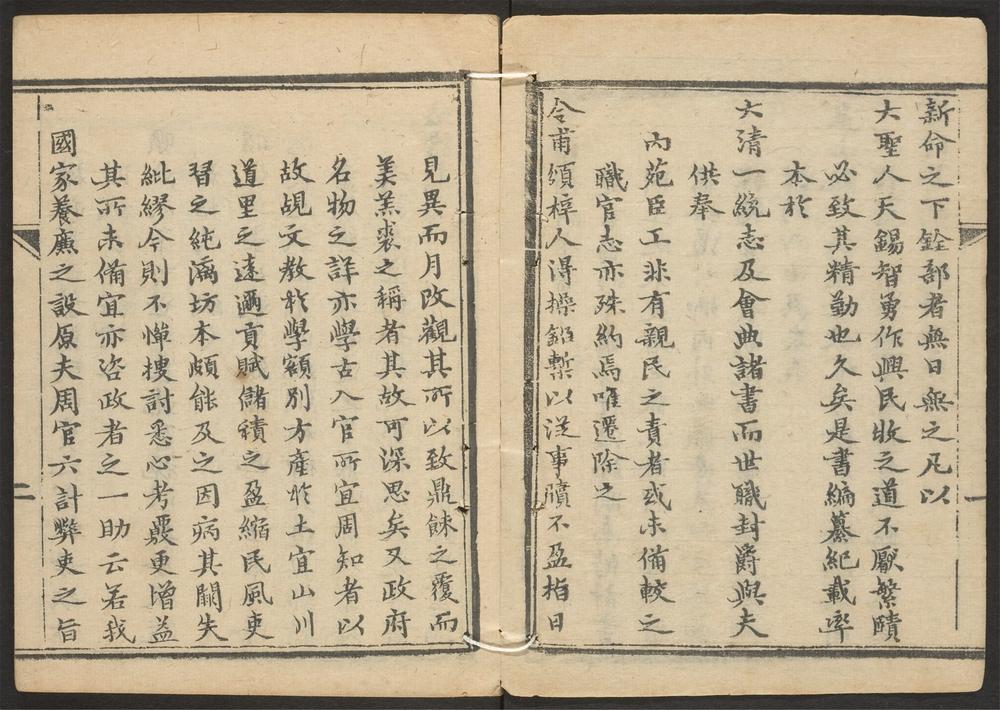 新命之下銓部者無日無之凡以
大聖人天錫智勇作興民牧之道不厭繁賾
必致其精勤也久矣是書編纂紀載率
本於
大清一統志及會典諸書而世職封爵與夫
供奉
內苑臣工非有親民之責者或未備較之
職官志亦殊約焉唯遷除之
令甫頒梓人得操鉛槧以從事牘不盈栺日
一
見異而月改觀其所以致鼎餗之覆而
美羔裘之稱者其故可深思矣又政府
名物之詳亦學古入官所宜周知者以
故覘文教於學額別方產於土宜山川
道里之遠邇貢賦儲積之盈縮民風吏
習之純漓坊本頗能及之因病其闕失
紕繆今則不憚搜討悉心考覈更增益
其所未備宜亦咨政者之一助云若我
國家養廉之設原夫周官六計弊吏之旨
二